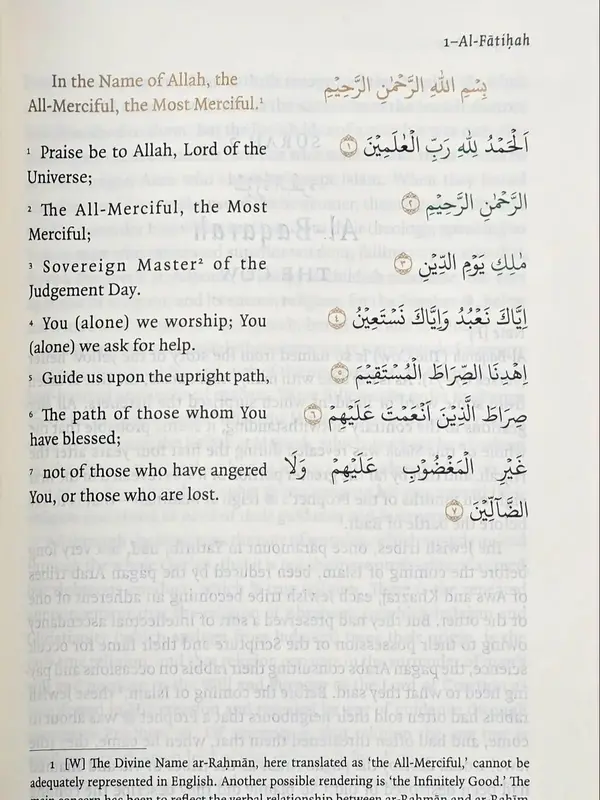 1–Al-Fātiḥah
In the Name of Allah, the
All-Merciful, the Most Merciful.¹
¹ Praise be to Allah, Lord of the
Universe;
² The All-Merciful, the Most
Merciful;
³ Sovereign Master² of the
Judgement Day.
⁴ You (alone) we worship; You
(alone) we ask for help.
⁵ Guide us upon the upright path,
⁶ The path of those whom You
have blessed;
⁷ not of those who have angered
You, or those who are lost.
بِسْمِ اللهِ الرَّحْمٰنِ الرَّحِيْمِ
اَلْحَمْدُ لِلهِ رَبِّ الْعٰلَمِيْنَ ١
الرَّحْمٰنِ الرَّحِيْمِ ٢
مٰلِكِ يَوْمِ الدِّيْنِ ٣
اِيَّاكَ نَعْبُدُ وَاِيَّاكَ نَسْتَعِيْنُ ٤
اِهْدِنَا الصِّرَاطَ الْمُسْتَقِيْمَ ٥
صِرَاطَ الَّذِيْنَ اَنْعَمْتَ عَلَيْهِمْ ٦
غَيْرِ الْمَغْضُوْبِ عَلَيْهِمْ وَلَا
الضَّآلِّيْنَ ٧
1 [W] The Divine Name ar-Raḥmān, here translated as ‘the All-Merciful,’ cannot be
adequately represented in English. Another possible rendering is ‘the Infinitely Good.’ The
main concern has been to reflect the verbal relationship between ar-Raḥmān and ar-Raḥīm